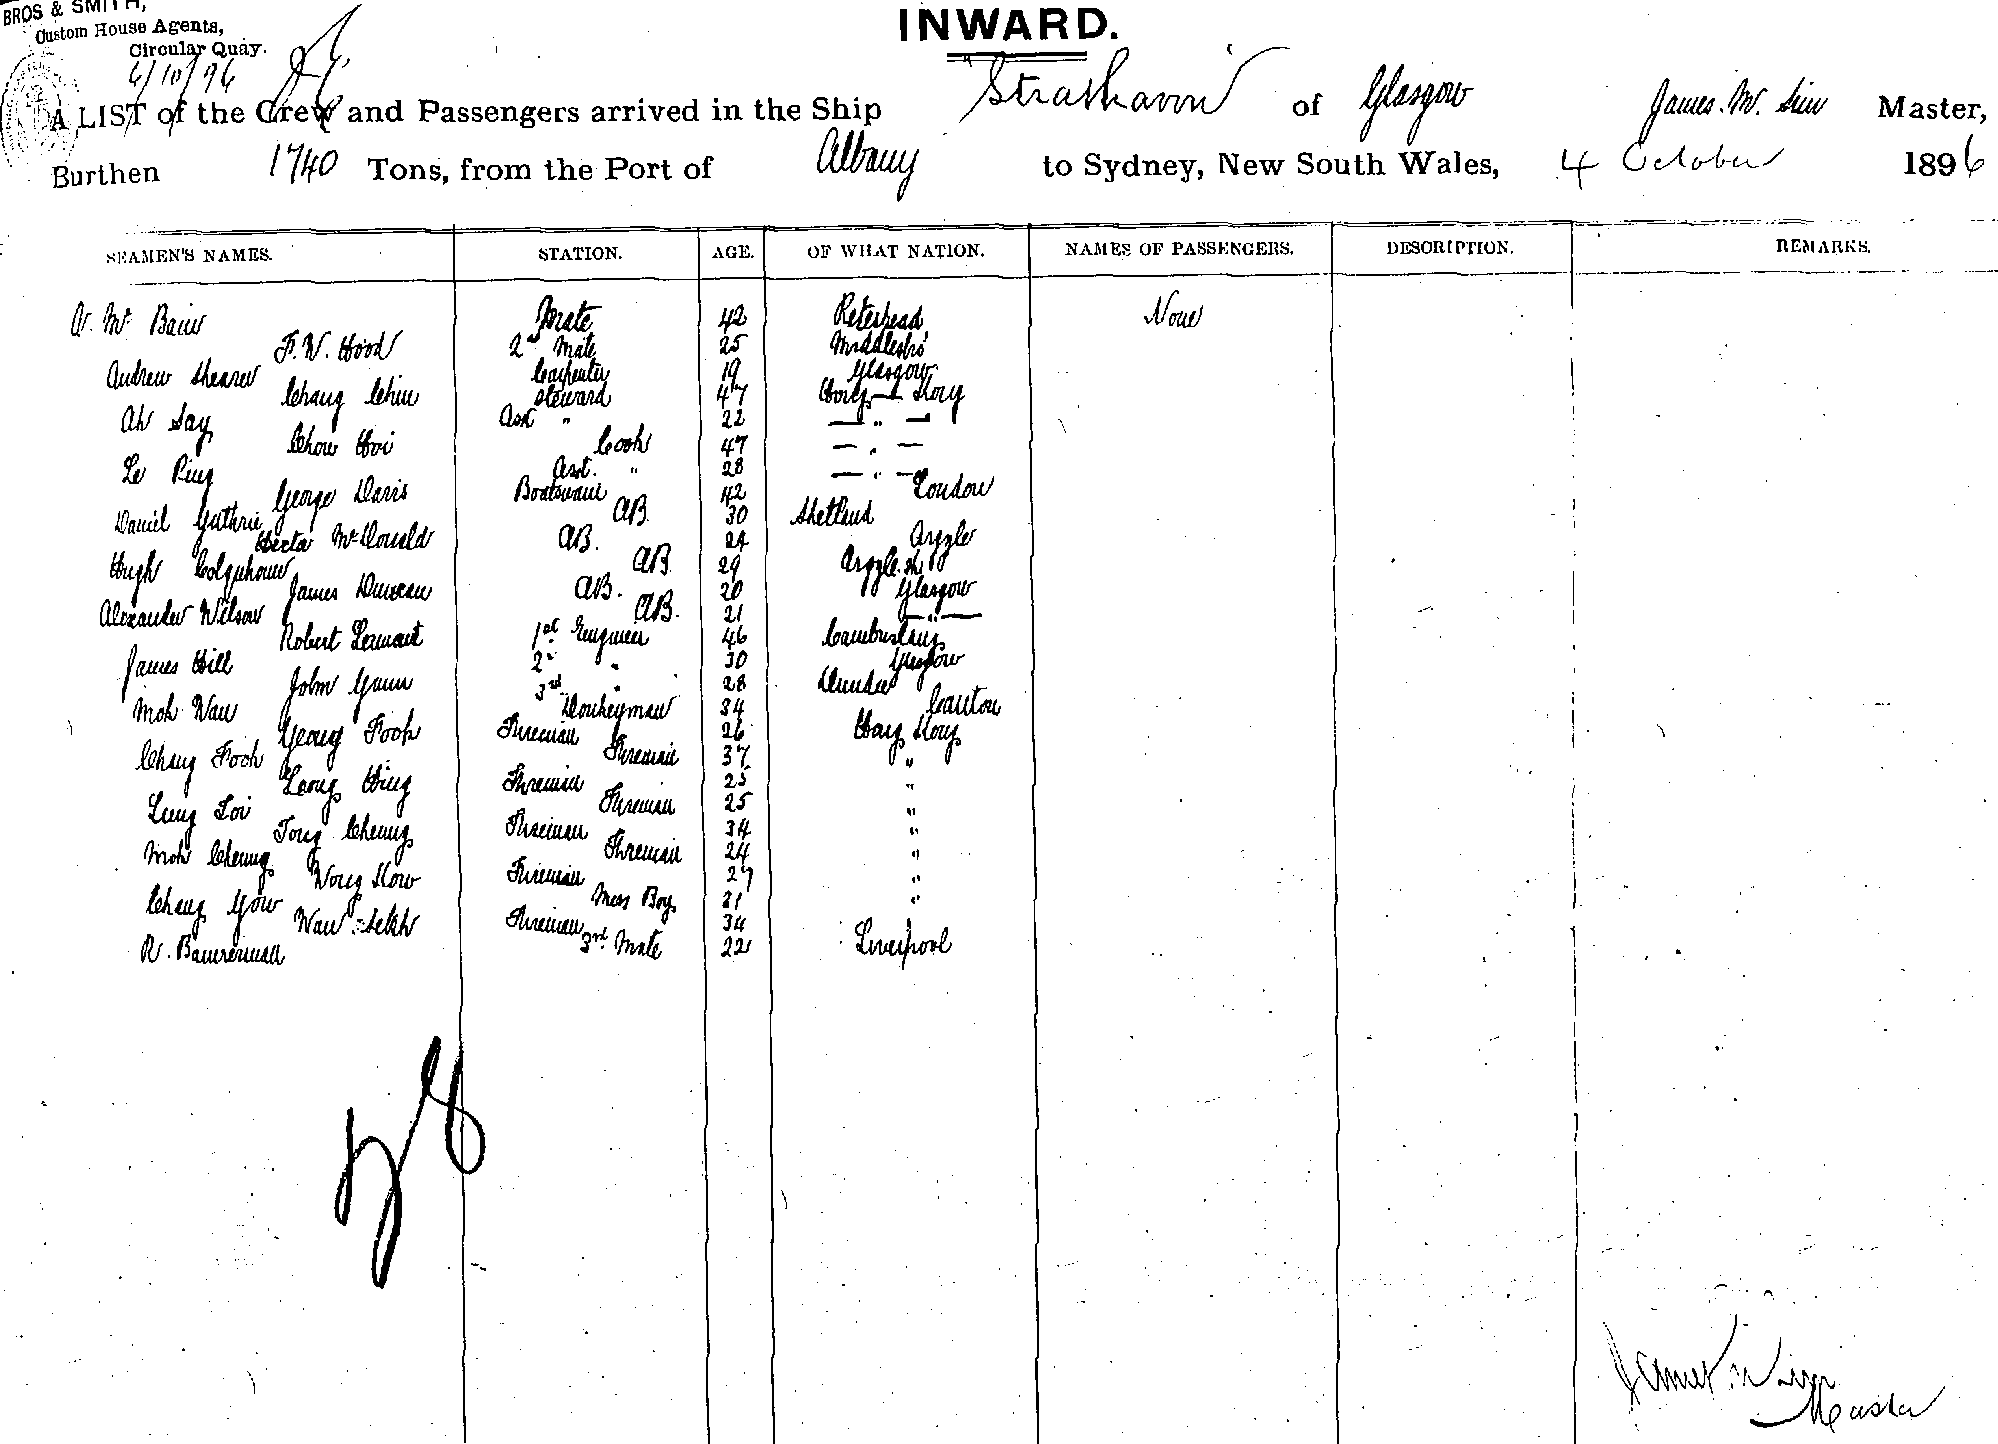 BROS & SMITH,
Custom House Agents,
Circular Quay.
6/10/96
INWARD.
A LIST of the Crew and Passengers arrived in the Ship Strathavon of Glasgow James. W. Sim Master,
Burthen 1740 Tons, from the Port of Albany to Sydney, New South Wales, 4 October 1896
SEAMEN'S NAMES. STATION. AGE. OF WHAT NATION. NAMES OF PASSENGERS. DESCRIPTION. REMARKS.
Bain Mate 42 Peterhead None
F. W. Hood 2nd Mate 25 Middlesbro
Andrew Shearer Carpenter 19 Glasgow
Chang Chin Steward 47 Hong Kong
Ah Say Asst " 22 — " —
Chow Hoi Cook 47 — " —
Le Ping Asst. " 28 — " —
George Davis Boatswain 42 London
Daniel Guthrie AB. 30 Shetland
Hector McDonald AB. 24 Argyle
Hugh Colquhoun AB 29 Argyle.sh
James Duncan AB. 20 Glasgow
Alexander Wilson AB. 21 — " —
Robert 1st Engineer 46 Cambuslang
James Hill 2nd " 30 Glasgow
John Gunn 3rd " 28 Dundee
Moh Wau Donkeyman 34 Canton
Yeong Fook Fireman 26 Hong Kong
Chang Fook Fireman 37 "
Leong Hing Fireman 25 "
Lung Loi Fireman 25 "
Tong Cheung Fireman 34 "
Moh Cheung Fireman 24 "
Wong Kow Fireman 27 "
Chang Yow Mess Boy 21 "
Wau Fireman 34
R. 3rd Mate 22 Liverpool
James W Sim
Master